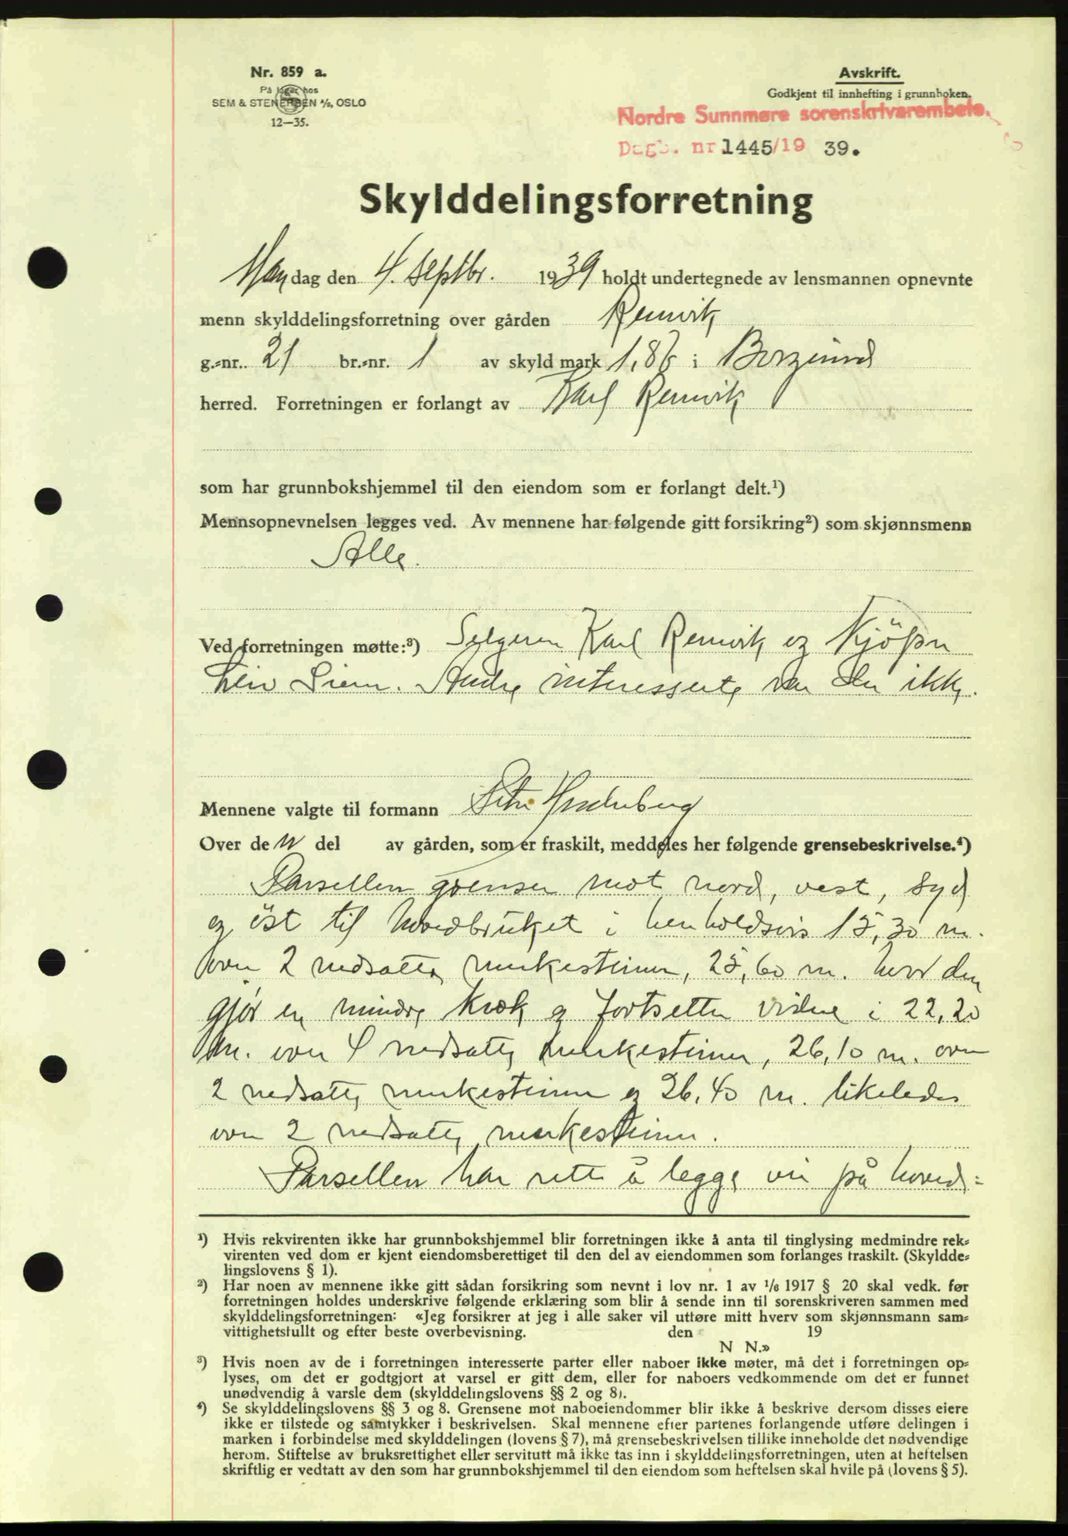 Nr. 859 a.
På lager hos
SEM & STENERSEN A/S, OSLO
12—35.
Avskrift.
Godkjent til innhefting i grunnboken.
Nordre Sunnmøre sorenskriverembete.
Dagb. nr 1445/19 39.
Skylddelingsforretning
Mandag den 4. septbr. 1939 holdt undertegnede av lensmannen opnevnte
menn skylddelingsforretning over gården Remvik
g.-nr. 21 br.-nr. 1 av skyld mark 1,86 i Borgund
herred. Forretningen er forlangt av Karl Remvik
som har grunnbokshjemmel til den eiendom som er forlangt delt.¹)
Mennsopnevnelsen legges ved. Av mennene har følgende gitt forsikring²) som skjønnsmenn
Alle.
Ved forretningen møtte:³) Selgeren Karl Remvik og kjöpern
Leiv Siem. Andre interesserte var der ikke.
Mennene valgte til formann Peter
Over den del av gården, som er fraskilt, meddeles her følgende grensebeskrivelse.⁴)
Parsellen grenser mot nord, vest, syd
og öst til hovedbruket i henholdsvis 15,30 m.
over 2 nedsatte merkesteiner, 25,60 m. hvor den
gjør en mindre knæk og fortsetter videre i 22,20
m. over 4 nedsatte merkesteiner, 26,10 m. over
2 nedsatte merkesteiner og 26,40 m. likeledes
over 2 nedsatte merkesteiner.
Parsellen har rett å legge vei på hoved-
¹) Hvis rekvirenten ikke har grunnbokshjemmel blir forretningen ikke å anta til tinglysing medmindre rek-
virenten ved dom er kjent eiendomsberettiget til den del av eiendommen som forlanges fraskilt. (Skyldde-
lingslovens § 1).
²) Har noen av mennene ikke gitt sådan forsikring som nevnt i lov nr. 1 av 1/6 1917 § 20 skal vedk. før
forretningen holdes underskrive følgende erklæring som blir å sende inn til sorenskriveren sammen med
skylddelingsforretningen: «Jeg forsikrer at jeg i alle saker vil utføre mitt hverv som skjønnsmann sam-
vittighetsfullt og efter beste overbevisning. den 19
N N.»
³) Hvis noen av de i forretningen interesserte parter eller naboer ikke møter, må det i forretningen op-
lyses, om det er godtgjort at varsel er gitt dem, eller for naboers vedkommende om det er funnet
unødvendig å varsle dem (skylddelingslovens §§ 2 og 8).
⁴) Se skylddelingslovens §§ 3 og 8. Grensene mot naboeiendommer blir ikke å beskrive dersom disses eiere
ikke er tilstede og samtykker i beskrivelsen. Skal mennene efter partenes forlangende utføre delingen i
marken i forbindelse med skylddelingen (lovens § 7), må grensebeskrivelsen tillike inneholde det nødvendige
herom. Stiftelse av bruksrettighet eller servitutt må ikke tas inn i skylddelingsforretningen, uten at heftelsen
skriftlig er vedtatt av den som har grunnbokshjemmel til den eiendom som heftelsen skal hvile på (lovens § 5).